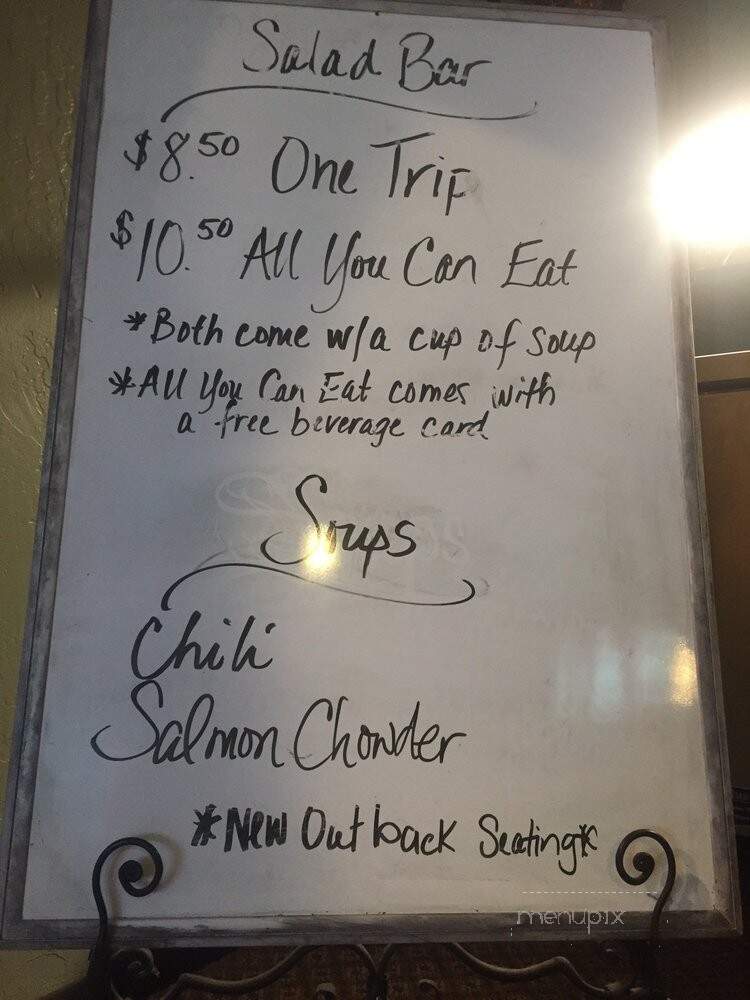 Salad Bar
$8.50 One Trip
$10.50 All You Can Eat
*Both come w/a cup of soup
*All You Can Eat comes with
a free beverage card
Soups
Chili
Salmon Chowder
*New Out back Seating*
menupix